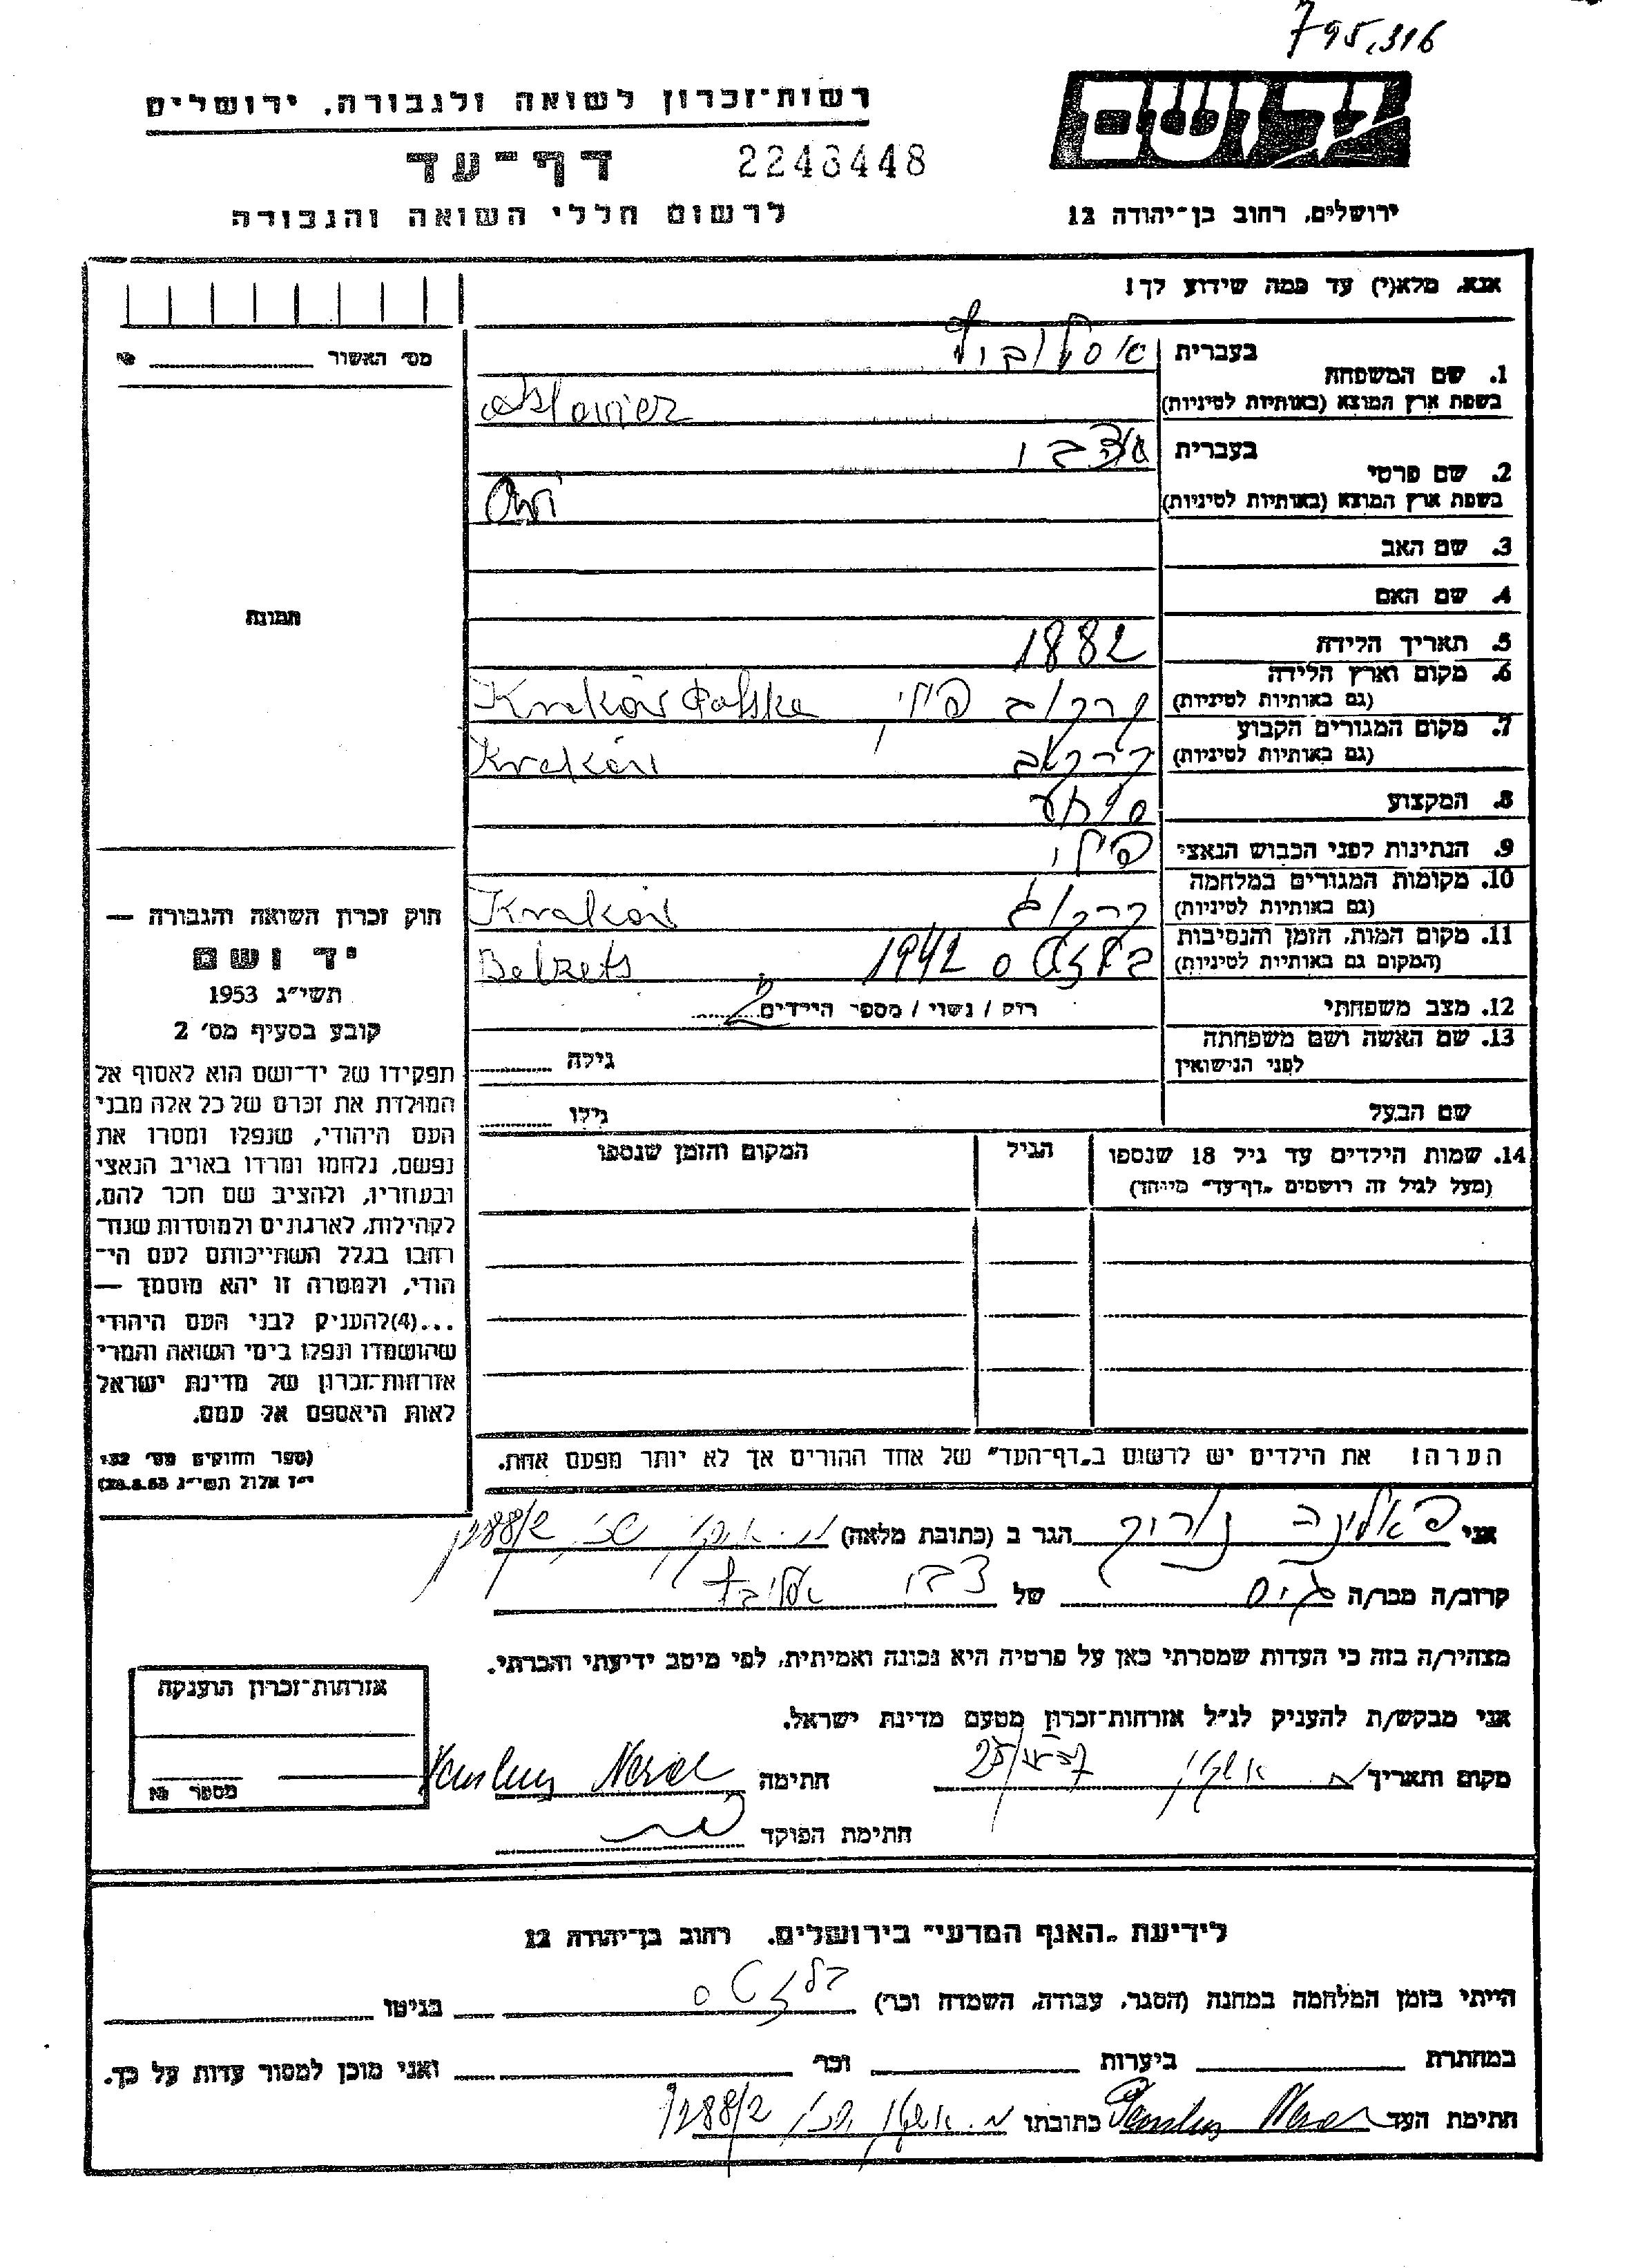 795,316
רשות־זכרון לשואה ולגבורה, ירושלים
יד ושם
דף־עד 2246448
לרשום חללי השואה והגבורה
ירושלים, רחוב בן־יהודה 12
אנא, מלא(י) עד כמה שידוע לך!
מס' האשור №
1. שם המשפחה
בעברית
בשפת ארץ המוצא (באותיות לטיניות)
2. שם פרטי
בעברית
בשפת ארץ המוצא (באותיות לטיניות)
3. שם האב
4. שם האם
תמונה
5. תאריך הלידה 1882
6. מקום וארץ הלידה
(גם באותיות לטיניות) קרקוב Kraków Polska
7. מקום המגורים הקבוע
(גם באותיות לטיניות) קרקוב Kraków
8. המקצוע סוחר
9. הנתינות לפני הכבוש הנאצי פולני
10. מקומות המגורים במלחמה
(גם באותיות לטיניות) קרקוב Kraków
11. מקום המות, הזמן והנסיבות
(המקום גם באותיות לטיניות) 1942 Belzets
12. מצב משפחתי רווק / נשוי / מספר הילדים 2
13. שם האשה ושם משפחתה
לפני הנישואין גילה
שם הבעל גילו
14. שמות הילדים עד גיל 18 שנספו הגיל המקום והזמן שנספו
(מעל לגיל זה רושמים „דף־עד" מיוחד)
הערה! את הילדים יש לרשום ב„דף־העד" של אחד ההורים אך לא יותר מפעם אחת.
חוק זכרון השואה והגבורה —
יד ושם
תשי״ג 1953
קובע בסעיף מס׳ 2
תפקידו של יד־ושם הוא לאסוף אל
המולדת את זכרם של כל אלה מבני
העם היהודי, שנפלו ומסרו את
נפשם, נלחמו ומרדו באויב הנאצי
ובעוזריו, ולהציב שם וזכר להם,
לקהילות, לארגונים ולמוסדות שנח־
רבו בגלל השתייכותם לעם הי־
הודי, ולמטרה זו יהא מוסמך —
...(4) להעניק לבני העם היהודי
שהושמדו ונפלו בימי השואה והמרי
אזרחות־זכרון של מדינת ישראל
לאות היאספם אל עמם.
(ספר החוקים מס׳ 132,
י״ז אלול תשי״ג 28.8.53)
אני הגר ב (כתובת מלאה) 288/2
קרוב/ה מכר/ה של
מצהיר/ה בזה כי העדות שמסרתי כאן על פרטיה היא נכונה ואמיתית, לפי מיטב ידיעתי והכרתי.
אני מבקש/ת להעניק לנ״ל אזרחות־זכרון מטעם מדינת ישראל.
מקום ותאריך חתימה
חתימת הפוקד
אזרחות־זכרון הוענקה
מספר №
לידיעת „האגף המדעי" בירושלים, רחוב בן־יהודה 12
הייתי בזמן המלחמה במחנה (הסגר, עבודה, השמדה וכו') בגיטו
במחתרת ביערות וכו' ואני מוכן למסור עדות על כך.
חתימת העד כתובתו 288/2